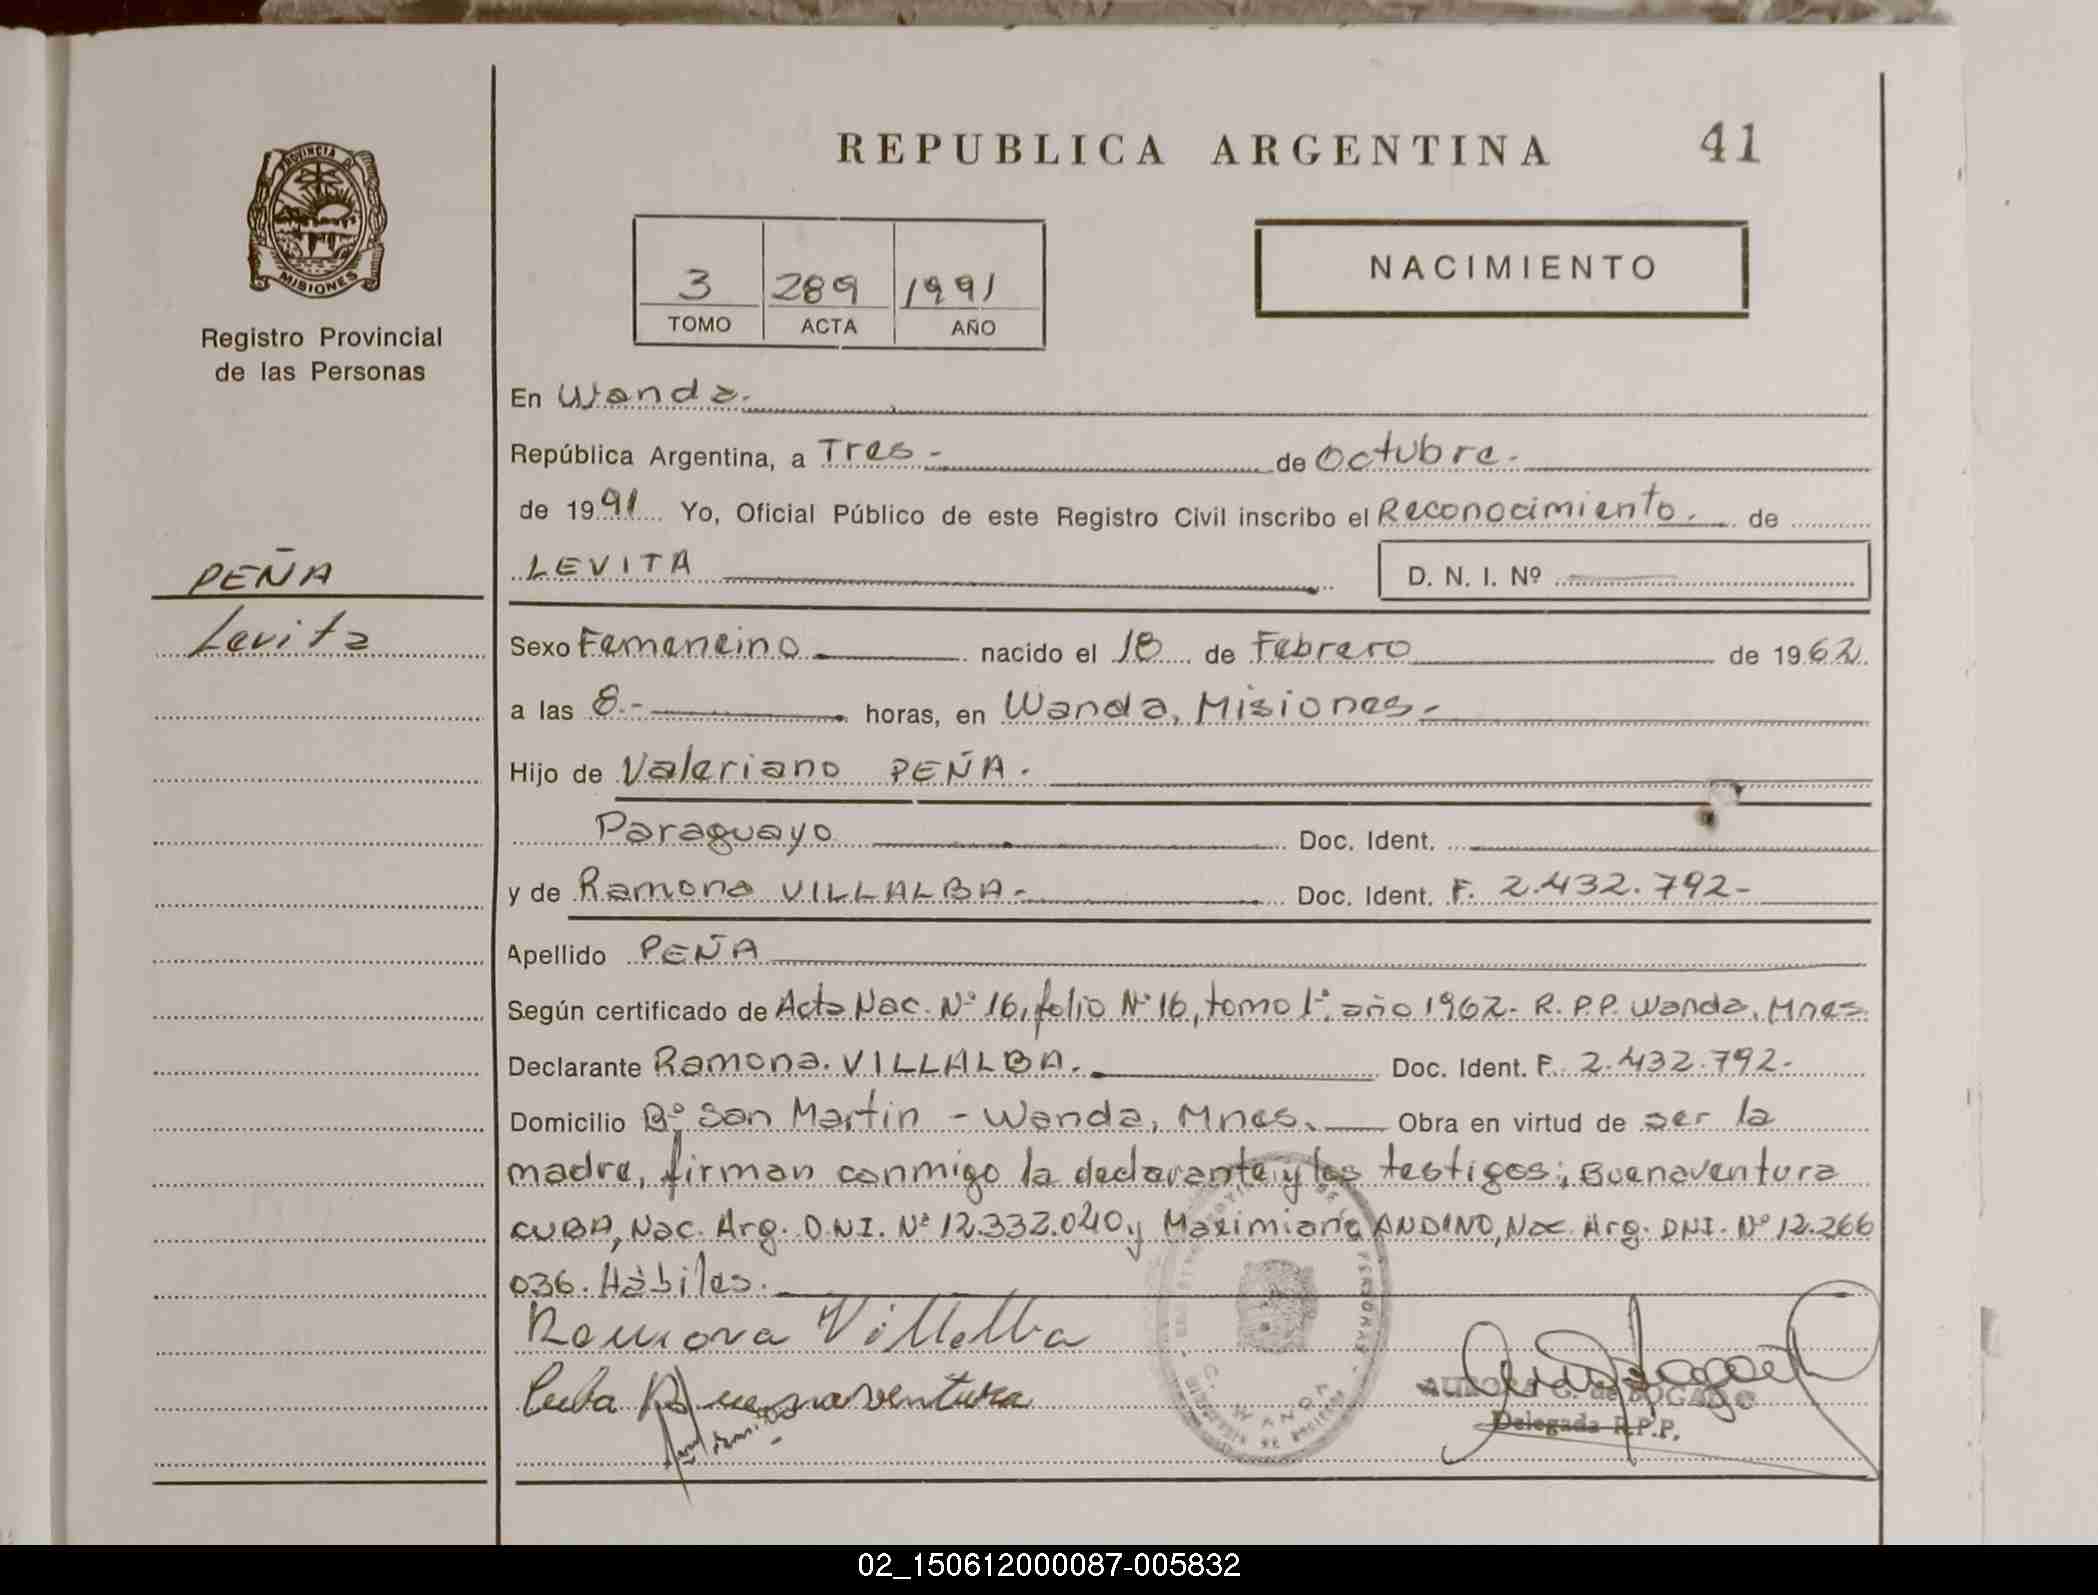 REPUBLICA ARGENTINA 41
PROVINCIA DE
MISIONES
Registro Provincial
de las Personas
3 289 1991
TOMO ACTA AÑO
NACIMIENTO
En Wanda.
República Argentina, a Tres - de Octubre.
de 1991 Yo, Oficial Público de este Registro Civil inscribo el Reconocimiento. de
LEVITA D. N. I. Nº
PEÑA
Levita
Sexo Femeneino nacido el 18 de Febrero de 1962
a las 8.- horas, en Wanda, Misiones.-
Hijo de Valeriano PEÑA.
Paraguayo Doc. Ident.
y de Ramona VILLALBA.- Doc. Ident. F. 2.432.792-
Apellido PEÑA
Según certificado de Acta Nac. Nº 16, folio Nº 16, tomo 1º, año 1962- R.P.P. Wanda, Mnes.
Declarante Ramona. VILLALBA. Doc. Ident. F. 2.432.792-
Domicilio Bº San Martin - Wanda, Mnes. Obra en virtud de ser la
madre, firman conmigo la declarante y los testigos; Buenaventura
CUBA, Nac. Arg. D.N.I. Nº 12.332.040 y Maximiano ANDINO, Nac. Arg. DNI. Nº 12.266
036. Hábiles.
Ramona Villalba
Cuba Buenaventura
AURORA G. de BOGADO
Delegada R.P.P.
WANDA
02_150612000087-005832